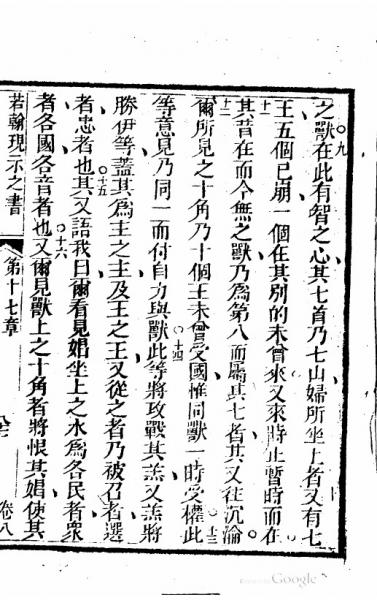 九
之獸在此有智之心其七首乃七山婦所坐上者又有七
王五個已崩一個在其別的未曾來又來時止暫時而在
十一
其昔在而今無之獸乃為第八而屬其七者其又往沉淪
十二
爾所見之十角乃十個王未曾受國惟同獸一時受權此
十三
等意見乃同一而付自力與獸此等將攻戰其羔又羔將
十四
勝伊等蓋其為王之主及王之王又從之者乃被召者選
者忠者也其又語我曰爾看見娼坐上之水為各民者眾
十五
者各國各音者也又爾見獸上之十角者將恨其娼使其
十六
若翰現示之書
第十七章
卷八
Google